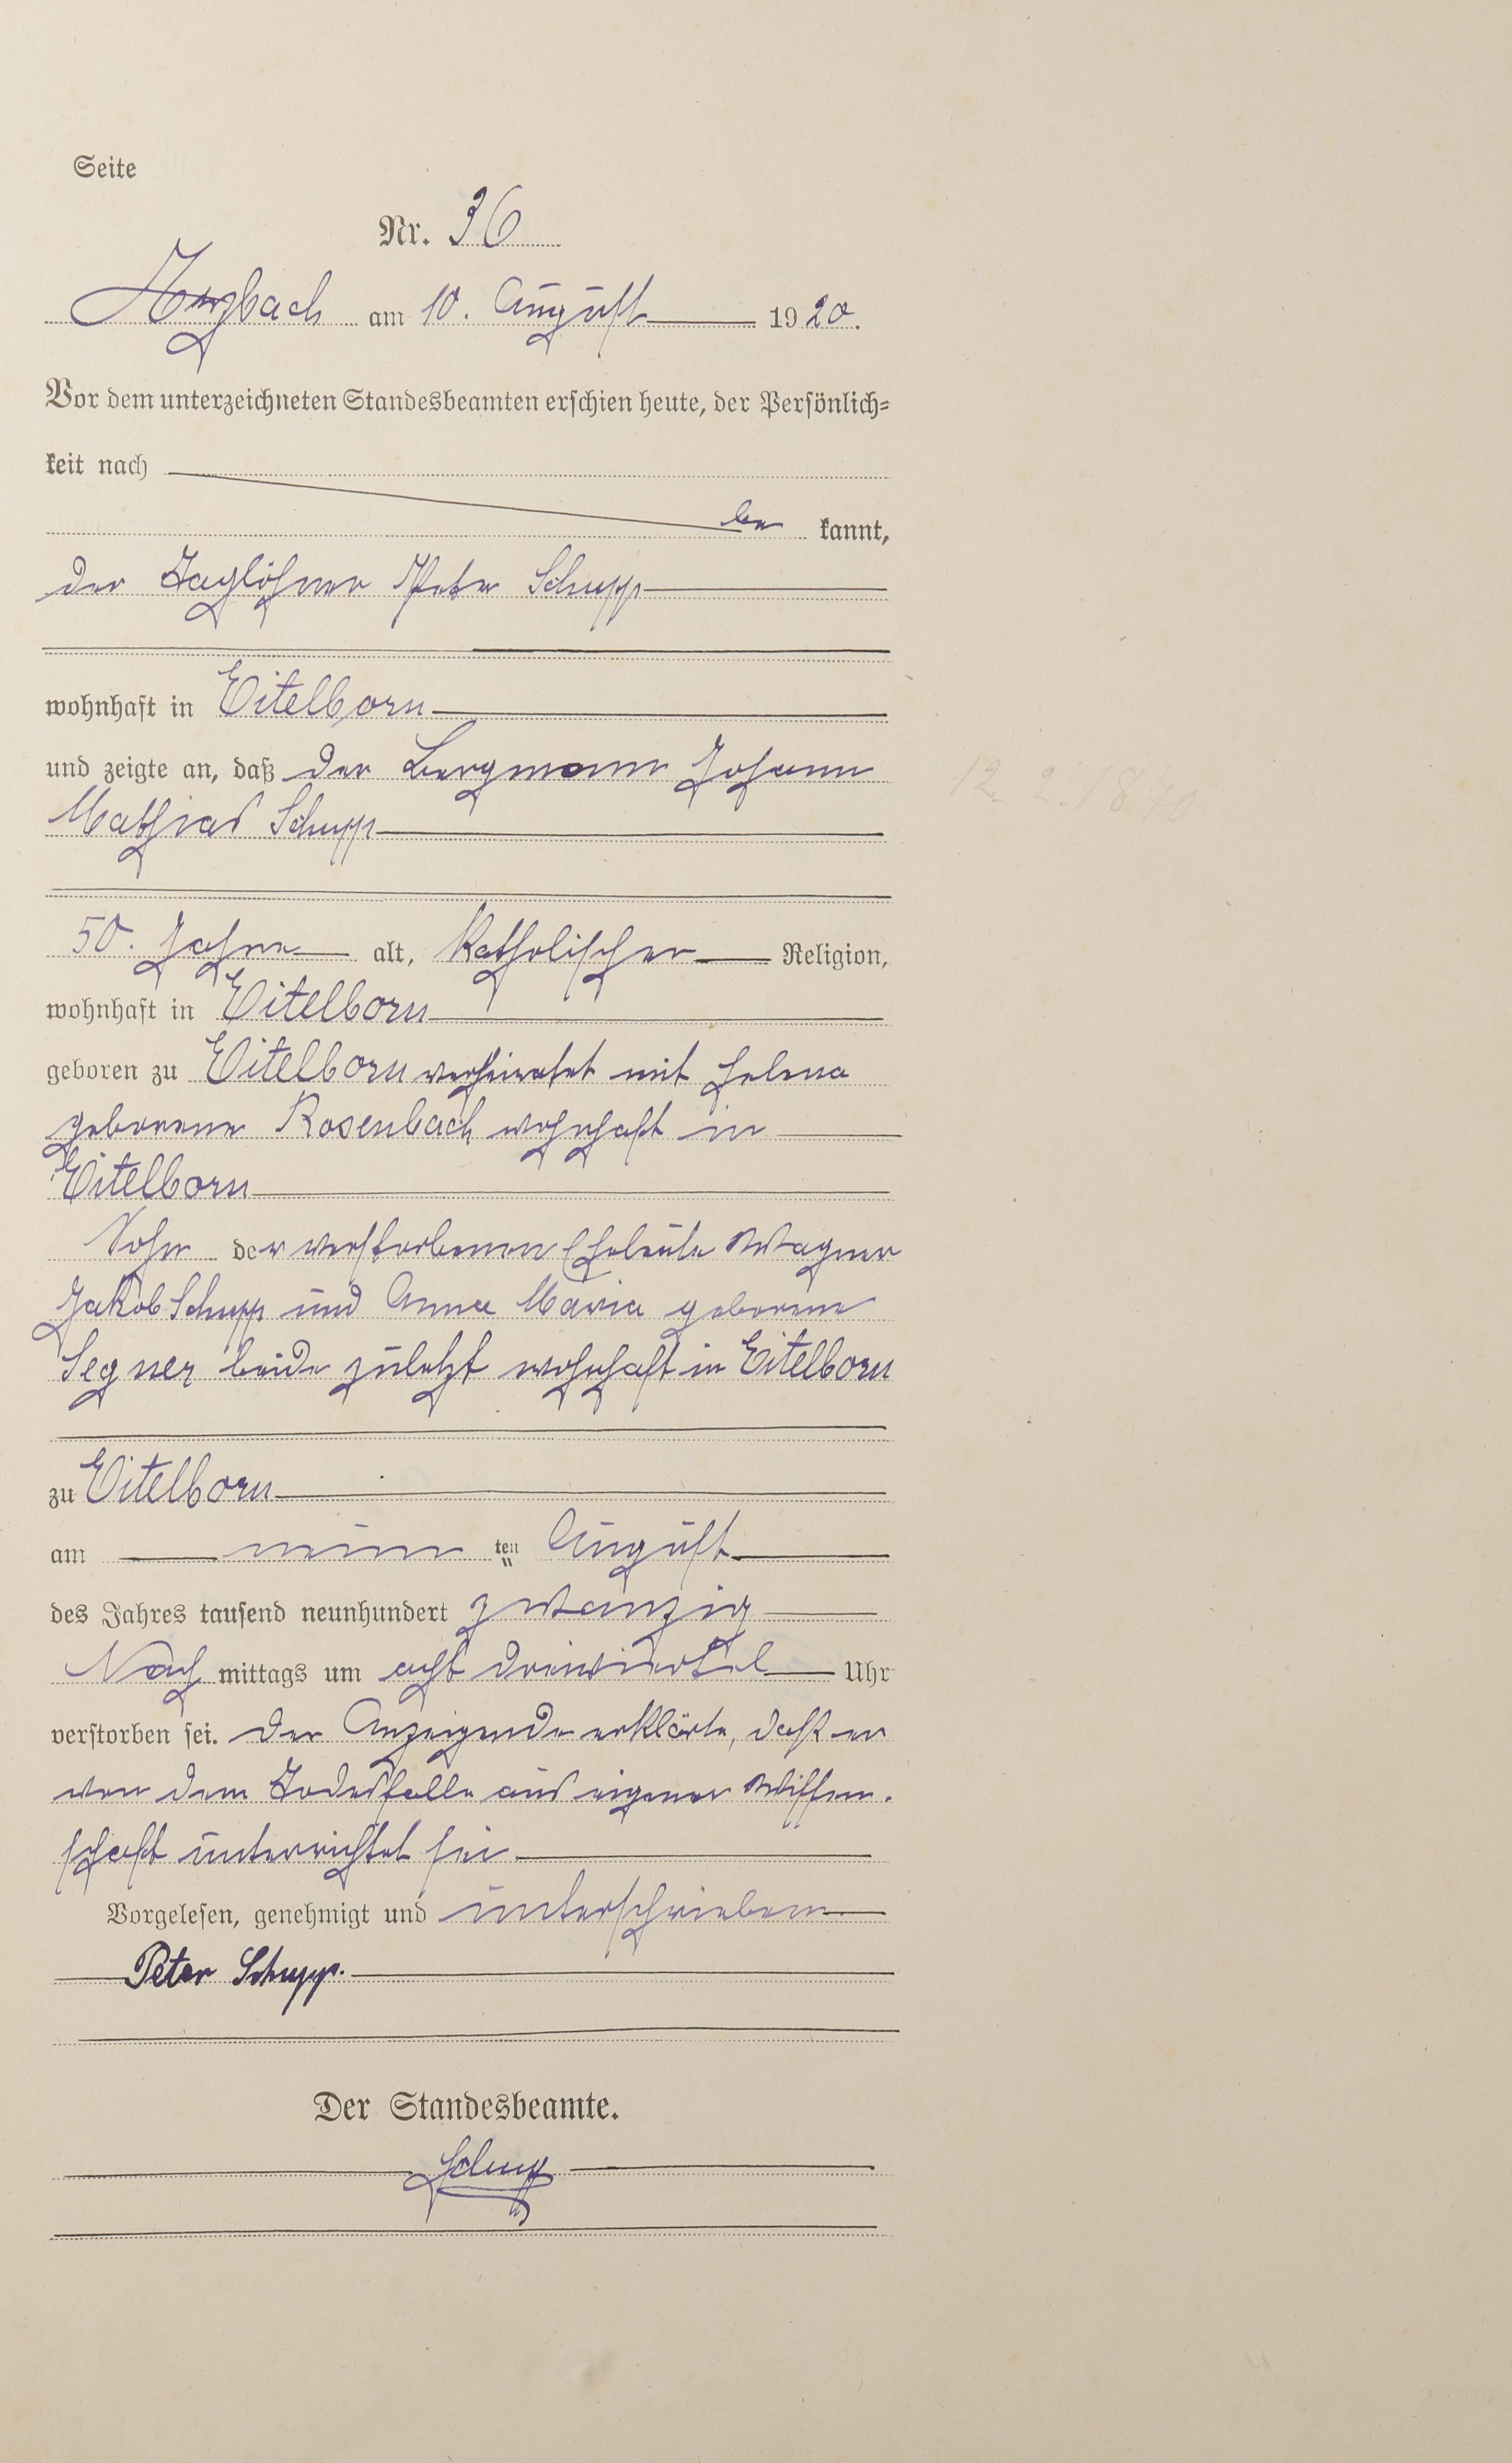 Seite
Nr. 36
am 10. August 1920.
Vor dem unterzeichneten Standesbeamten erschien heute, der Persönlich-
keit nach
be kannt,
der Taglöhner Peter Schupp
wohnhaft in Eitelborn
und zeigte an, daß der Bergmann Johann
Mathias Schupp
50. Jahre alt, katholischer Religion,
wohnhaft in Eitelborn
geboren zu Eitelborn verheiratet mit Helena
geborene Rosenbach wohnhaft in
Eitelborn
Sohn der verstorbenen Eheleute Wagner
Jakob Schupp und Anna Maria geborene
Segner beide zuletzt wohnhaft in Eitelborn
zu Eitelborn
am neun ten August
des Jahres tausend neunhundert zwanzig
Nach mittags um acht dreiviertel Uhr
verstorben sei. Der Anzeigende erklärte, daß er
von dem Todesfalle aus eigener Wissen-
schaft unterrichtet sei.
Vorgelesen, genehmigt und unterschrieben
Peter Schupp.
Der Standesbeamte.
Schupp
12. 2. 1870